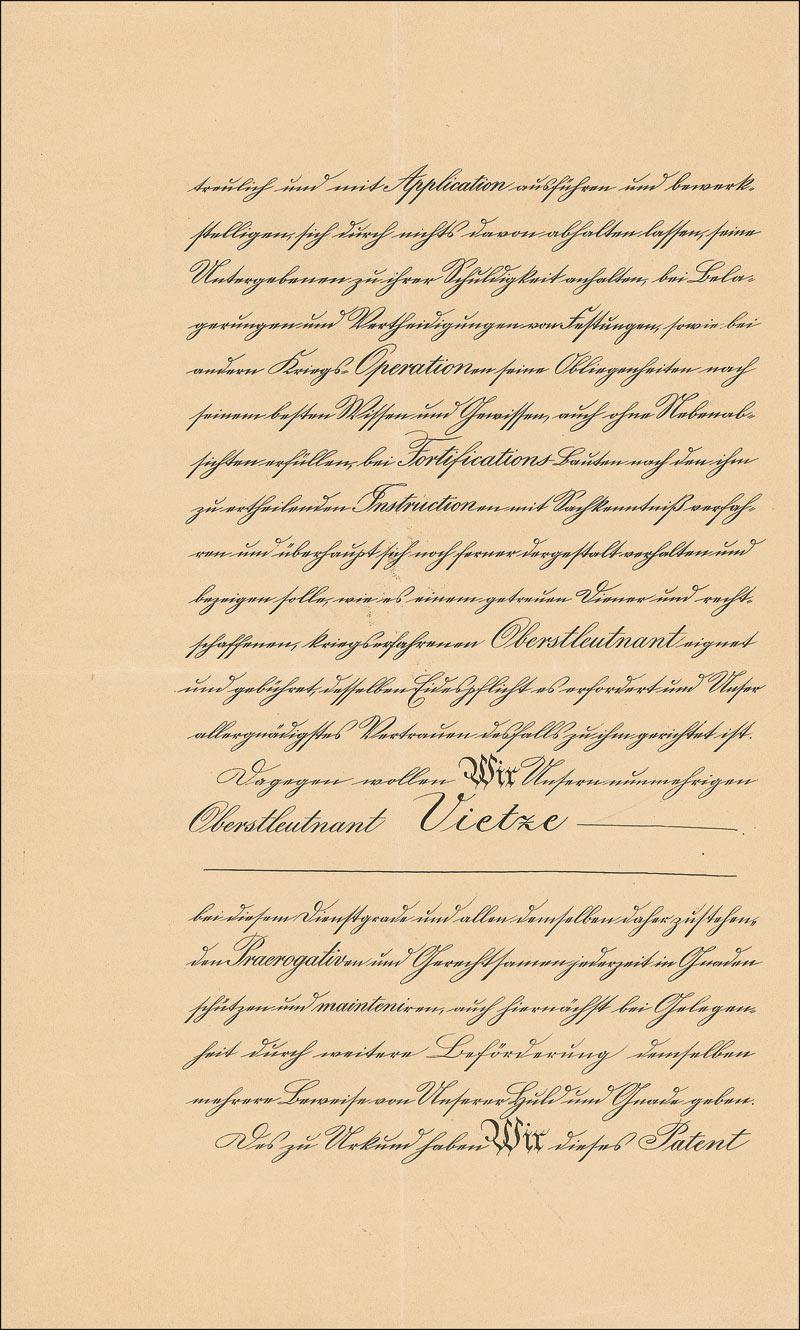 treulich und mit Application ausführen und bewerk-
stelligen, sich durch nichts davon abhalten lassen, seine
Untergebenen zu ihrer Schuldigkeit anhalten, bei Bela-
gerungen und Vertheidigungen von Festungen, sowie bei
andern Kriegs-Operationen seine Obliegenheiten nach
seinem besten Wissen und Gewissen, auch ohne Nebenab-
sichten erfüllen, bei Fortifications-Bauten nach den ihm
zu ertheilenden Instructionen mit Sachkenntniß verfah-
ren und überhaupt sich noch ferner dergestalt verhalten und
bezeigen solle, wie es einem getreuen Diener und recht-
schaffenen, kriegserfahrenen Oberstleutnant eignet
und gebühret, desselben Eidespflicht es erfordert und Unser
allergnädigstes Vertrauen desfalls zu ihm gerichtet ist.
Dagegen wollen Wir Unsern nunmehrigen
Oberstleutnant Vietze
bei diesem Dienstgrade und allen demselben daher zustehen-
den Praerogativen und Gerechtsamen jederzeit in Gnaden
schützen und mainteniren, auch hiernächst bei Gelegen-
heit durch weitere Beförderung demselben
mehrere Beweise von Unserer Huld und Gnade geben.
Des zu Urkund haben Wir dieses Patent